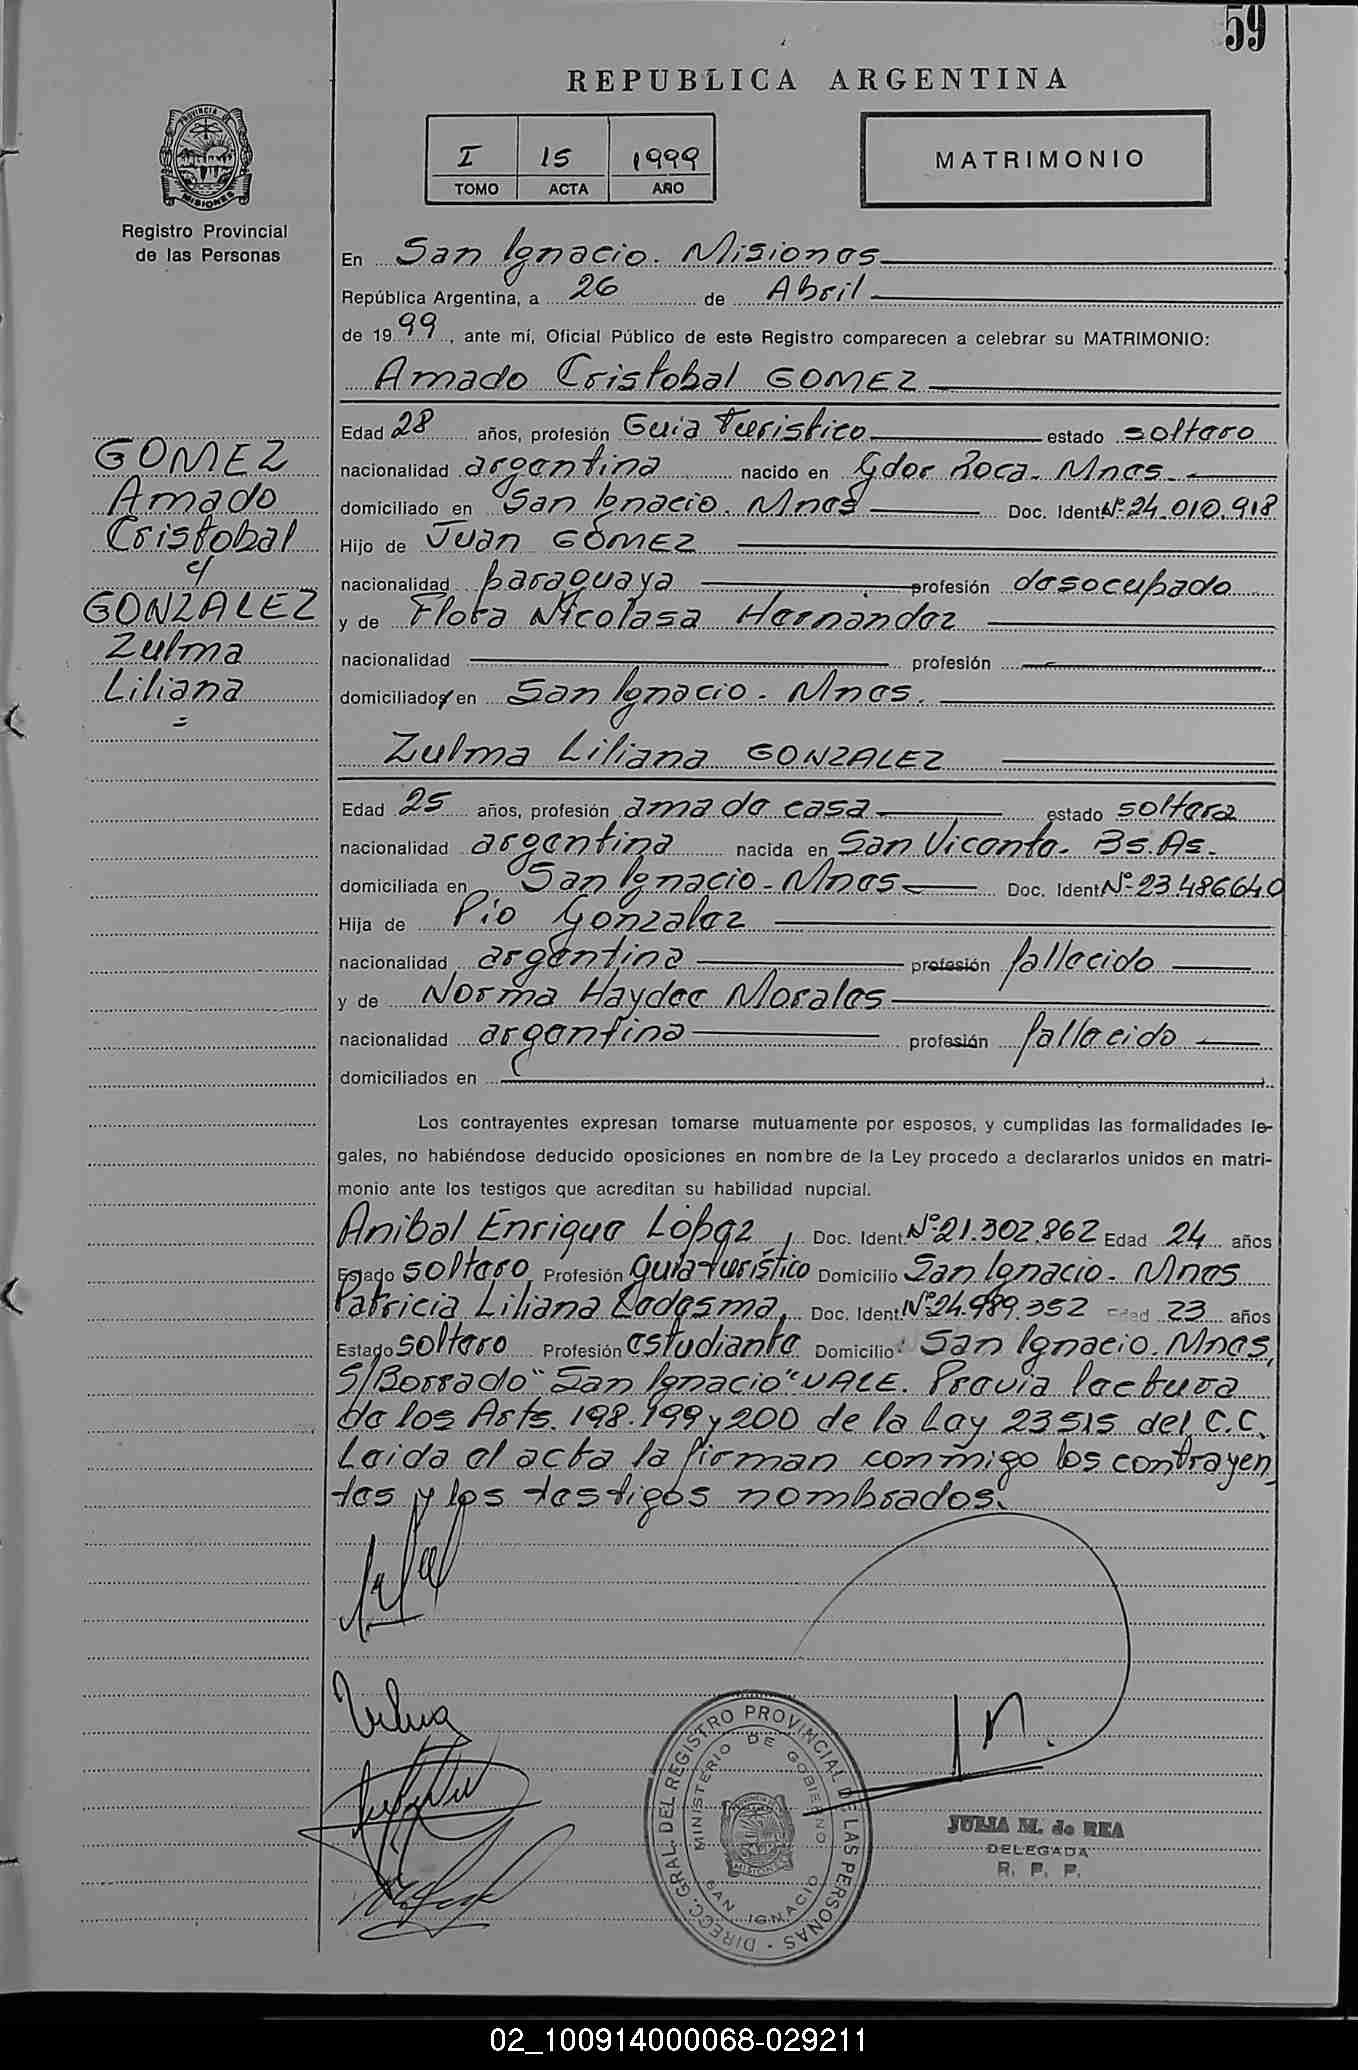 59
REPUBLICA ARGENTINA
I 15 1999
TOMO ACTA AÑO
MATRIMONIO
PROVINCIA DE
MISIONES
Registro Provincial
de las Personas
En San Ignacio. Misiones
República Argentina, a 26 de Abril
de 19 99, ante mí, Oficial Público de este Registro comparecen a celebrar su MATRIMONIO:
Amado Cristobal GOMEZ
Edad 28 años, profesión Guia Turistico estado soltero
nacionalidad argentina nacido en Gdor Roca. Mnes.
domiciliado en San Ignacio. Mnes Doc. Ident Nº 24.010.918
Hijo de Juan GOMEZ
nacionalidad paraguaya profesión desocupado
y de Flora Nicolasa Hernández
nacionalidad profesión
domiciliados en San Ignacio - Mnes.
GOMEZ
Amado
Cristobal
c/
GONZALEZ
Zulma
Liliana
=
Zulma Liliana GONZALEZ
Edad 25 años, profesión ama de casa estado soltera
nacionalidad argentina nacida en San Vicente. Bs. As.
domiciliada en San Ignacio - Mnes Doc. Ident Nº 23.486640
Hija de Pio Gonzalez
nacionalidad argentina profesión fallecido
y de Norma Haydee Morales
nacionalidad argentina profesión fallecido
domiciliados en
Los contrayentes expresan tomarse mutuamente por esposos, y cumplidas las formalidades le-
gales, no habiéndose deducido oposiciones en nombre de la Ley procedo a declararlos unidos en matri-
monio ante los testigos que acreditan su habilidad nupcial.
Anibal Enrique López, Doc. Ident. Nº 21.302.862 Edad 24 años
Estado soltero Profesión guia turístico Domicilio San Ignacio - Mnes
Patricia Liliana Ledesma, Doc. Ident. Nº 24.989.352 Edad 23 años
Estado soltero Profesión estudiante Domicilio: San Ignacio. Mnes,
S/Borrado "San Ignacio" VALE. Previa lectura
de los Arts. 198. 199 y 200 de la Ley 23515 del C.C.
Leida el acta la firman conmigo los contrayen
tes y los testigos nombrados.
Zulma
DIRECC. GRAL. DEL REGISTRO PROVINCIAL DE LAS PERSONAS
MINISTERIO DE GOBIERNO
SAN IGNACIO
PROVINCIA DE
MISIONES
JULIA M. de REA
DELEGADA
R. P. P.
02_100914000068-029211